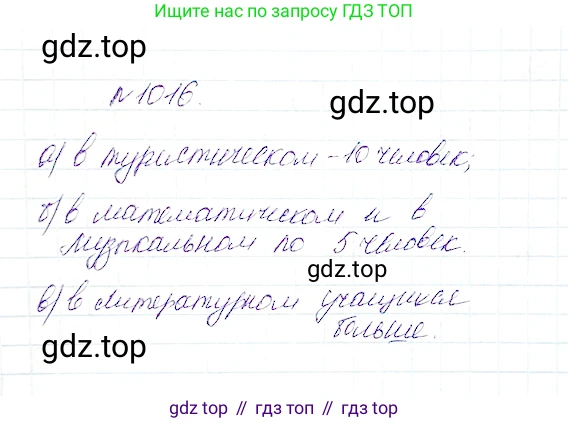 Ищите нас по запросу ГДЗ ТОП
gdz.top
№1016.
gdz.top
а) в туристическом - 10 человек;
б) в математическом и в
музыкальном по 5 человек.
gdz.top
в) в литературном учащихся
больше.
gdz.top
gdz top // гдз топ // gdz.top